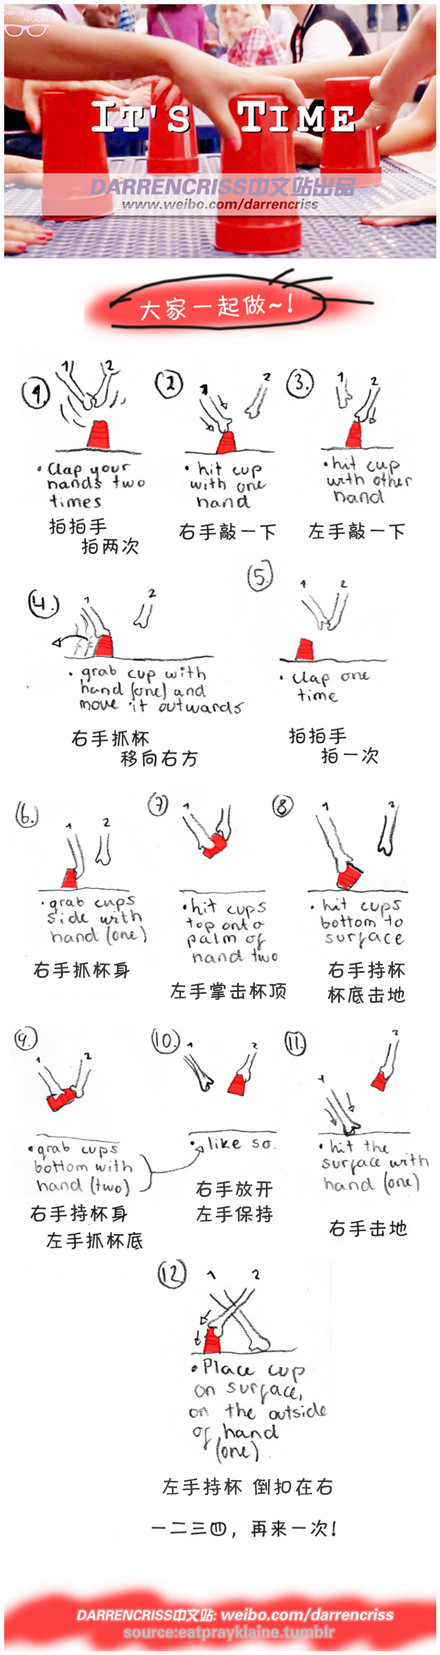 IT'S TIME
DARRENCRISS中文站出品
www.weibo.com/darrencriss
大家一起做~!
1
1 2
• Clap your
hands two
times
拍拍手
拍两次
2
1 2
• hit cup
with one
hand
右手敲一下
3.
1 2
• hit cup
with other
hand
左手敲一下
4.
1 2
• grab cup with
hand (one) and
move it outwards
右手抓杯
移向右方
5.
1 2
• clap one
time
拍拍手
拍一次
6.
1 2
• grab cups
side with
hand (one)
右手抓杯身
7
1 2
• hit cups
top onto
palm of
hand two
左手掌击杯顶
8
1 2
• hit cups
bottom to
surface
右手持杯
杯底击地
9.
1 2
• grab cups
bottom with
hand (two)
右手持杯身
左手抓杯底
10.
1 2
• like so.
右手放开
左手保持
11.
1 2
• hit the
surface with
hand (one)
右手击地
12
1 2
• Place cup
on surface,
on the outside
of hand
(one).
左手持杯 倒扣在右
一二三四，再来一次!
DARRENCRISS中文站: weibo.com/darrencriss
source:eatprayklaine.tumblr